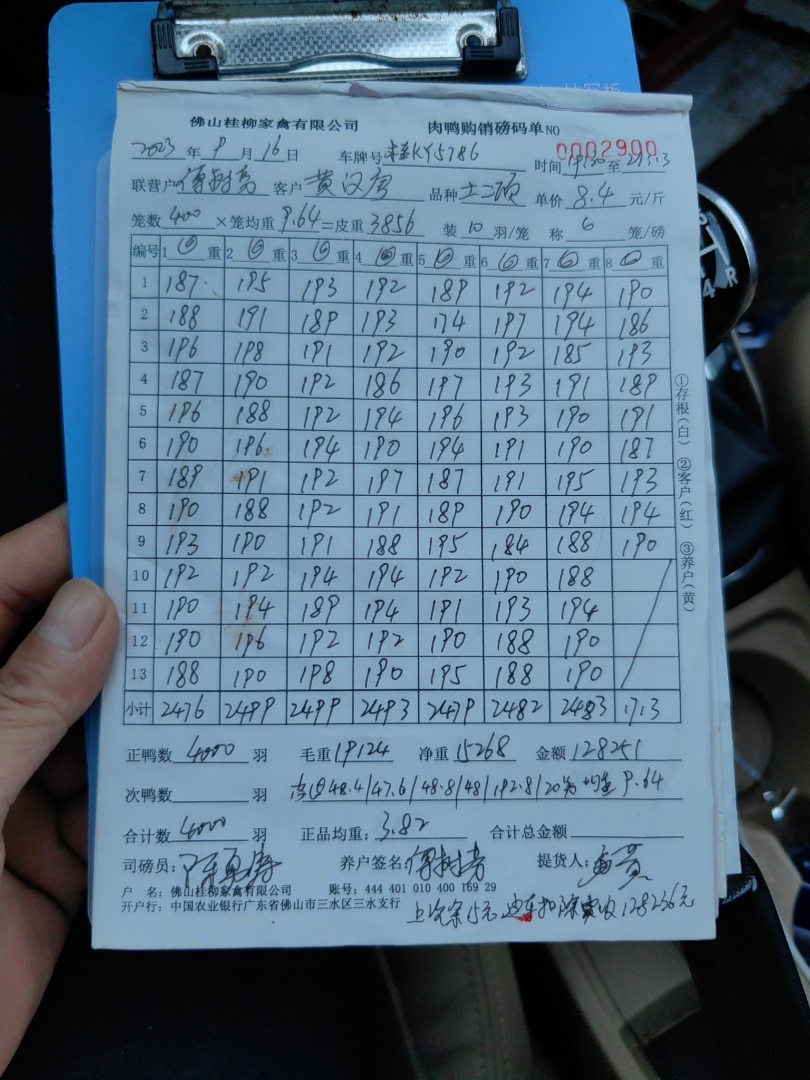 佛山桂柳家禽有限公司 肉鸭购销磅码单NO 0002900
2023年9月16日 车牌号 KY5786 时间 至
联营户 客户 黄汉唐 品种 土二项 单价8.4元/斤
笼数400×笼均重9.64=皮重3856 装10羽/笼 称6笼/磅
编号 1⑥重 2⑥重 3⑥重 4⑥重 5⑥重 6⑥重 7⑥重 8⑥重
1 187 195 193 192 189 192 194 190
2 188 191 189 193 174 197 194 186
3 196 198 191 192 190 192 185 193
4 187 190 192 186 197 193 191 189
5 196 188 192 194 196 193 190 191
6 190 196 194 190 194 191 190 187
7 189 191 192 197 187 191 195 193
8 190 188 192 191 189 190 194 194
9 193 190 191 188 195 184 188 190
10 192 192 194 194 192 190 188
11 190 194 189 194 191 193 194
12 190 196 192 192 190 188 190
13 188 190 198 190 195 188 190
小计 2476 2499 2499 2493 2479 2482 2483 1713
正鸭数4000羽 毛重19124 净重15268 金额128251
次鸭数 羽 48.4/47.6/48.8/48/192.8/20 均重9.64
合计数4000羽 正品均重:3.82 合计总金额
司磅员: 养户签名: 提货人:
户 名:佛山桂柳家禽有限公司 账号:444 401 010 400 169 29
开户行:中国农业银行广东省佛山市三水区三水支行
上次余15元 扣除 收128236元
①存根(白) ②客户(红) ③养户(黄)